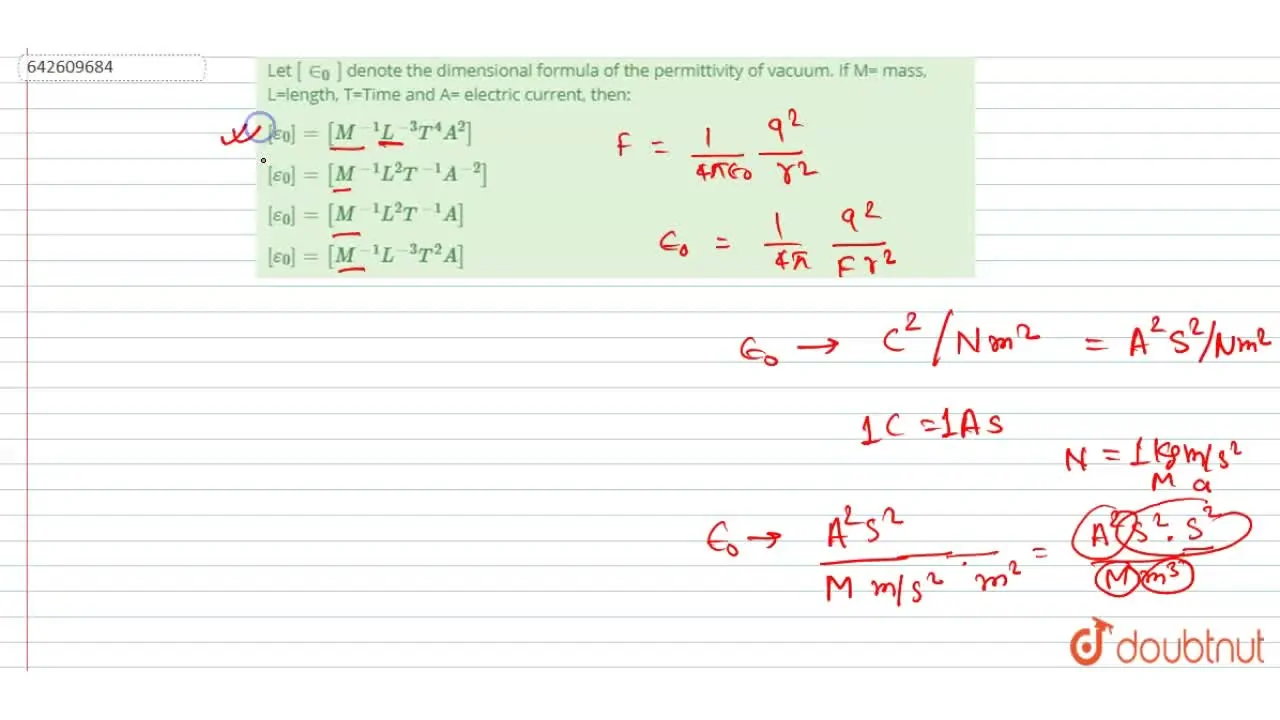 642609684
Let [ ∈0 ] denote the dimensional formula of the permittivity of vacuum. If M= mass,
L=length, T=Time and A= electric current, then:
[ε₀] = [M⁻¹L⁻³T⁴A²]
[ε₀] = [M⁻¹L²T⁻¹A⁻²]
[ε₀] = [M⁻¹L²T⁻¹A]
[ε₀] = [M⁻¹L⁻³T²A]
F = 1/4π∈₀ q²/r²
∈₀ = 1/4π q²/Fr²
∈₀ → C²/Nm² = A²S²/Nm²
1C = 1AS
N = 1kgm/s²
M a
∈₀ → A²S²/M m/s² · m² = A²S² · S²/M m³
doubtnut